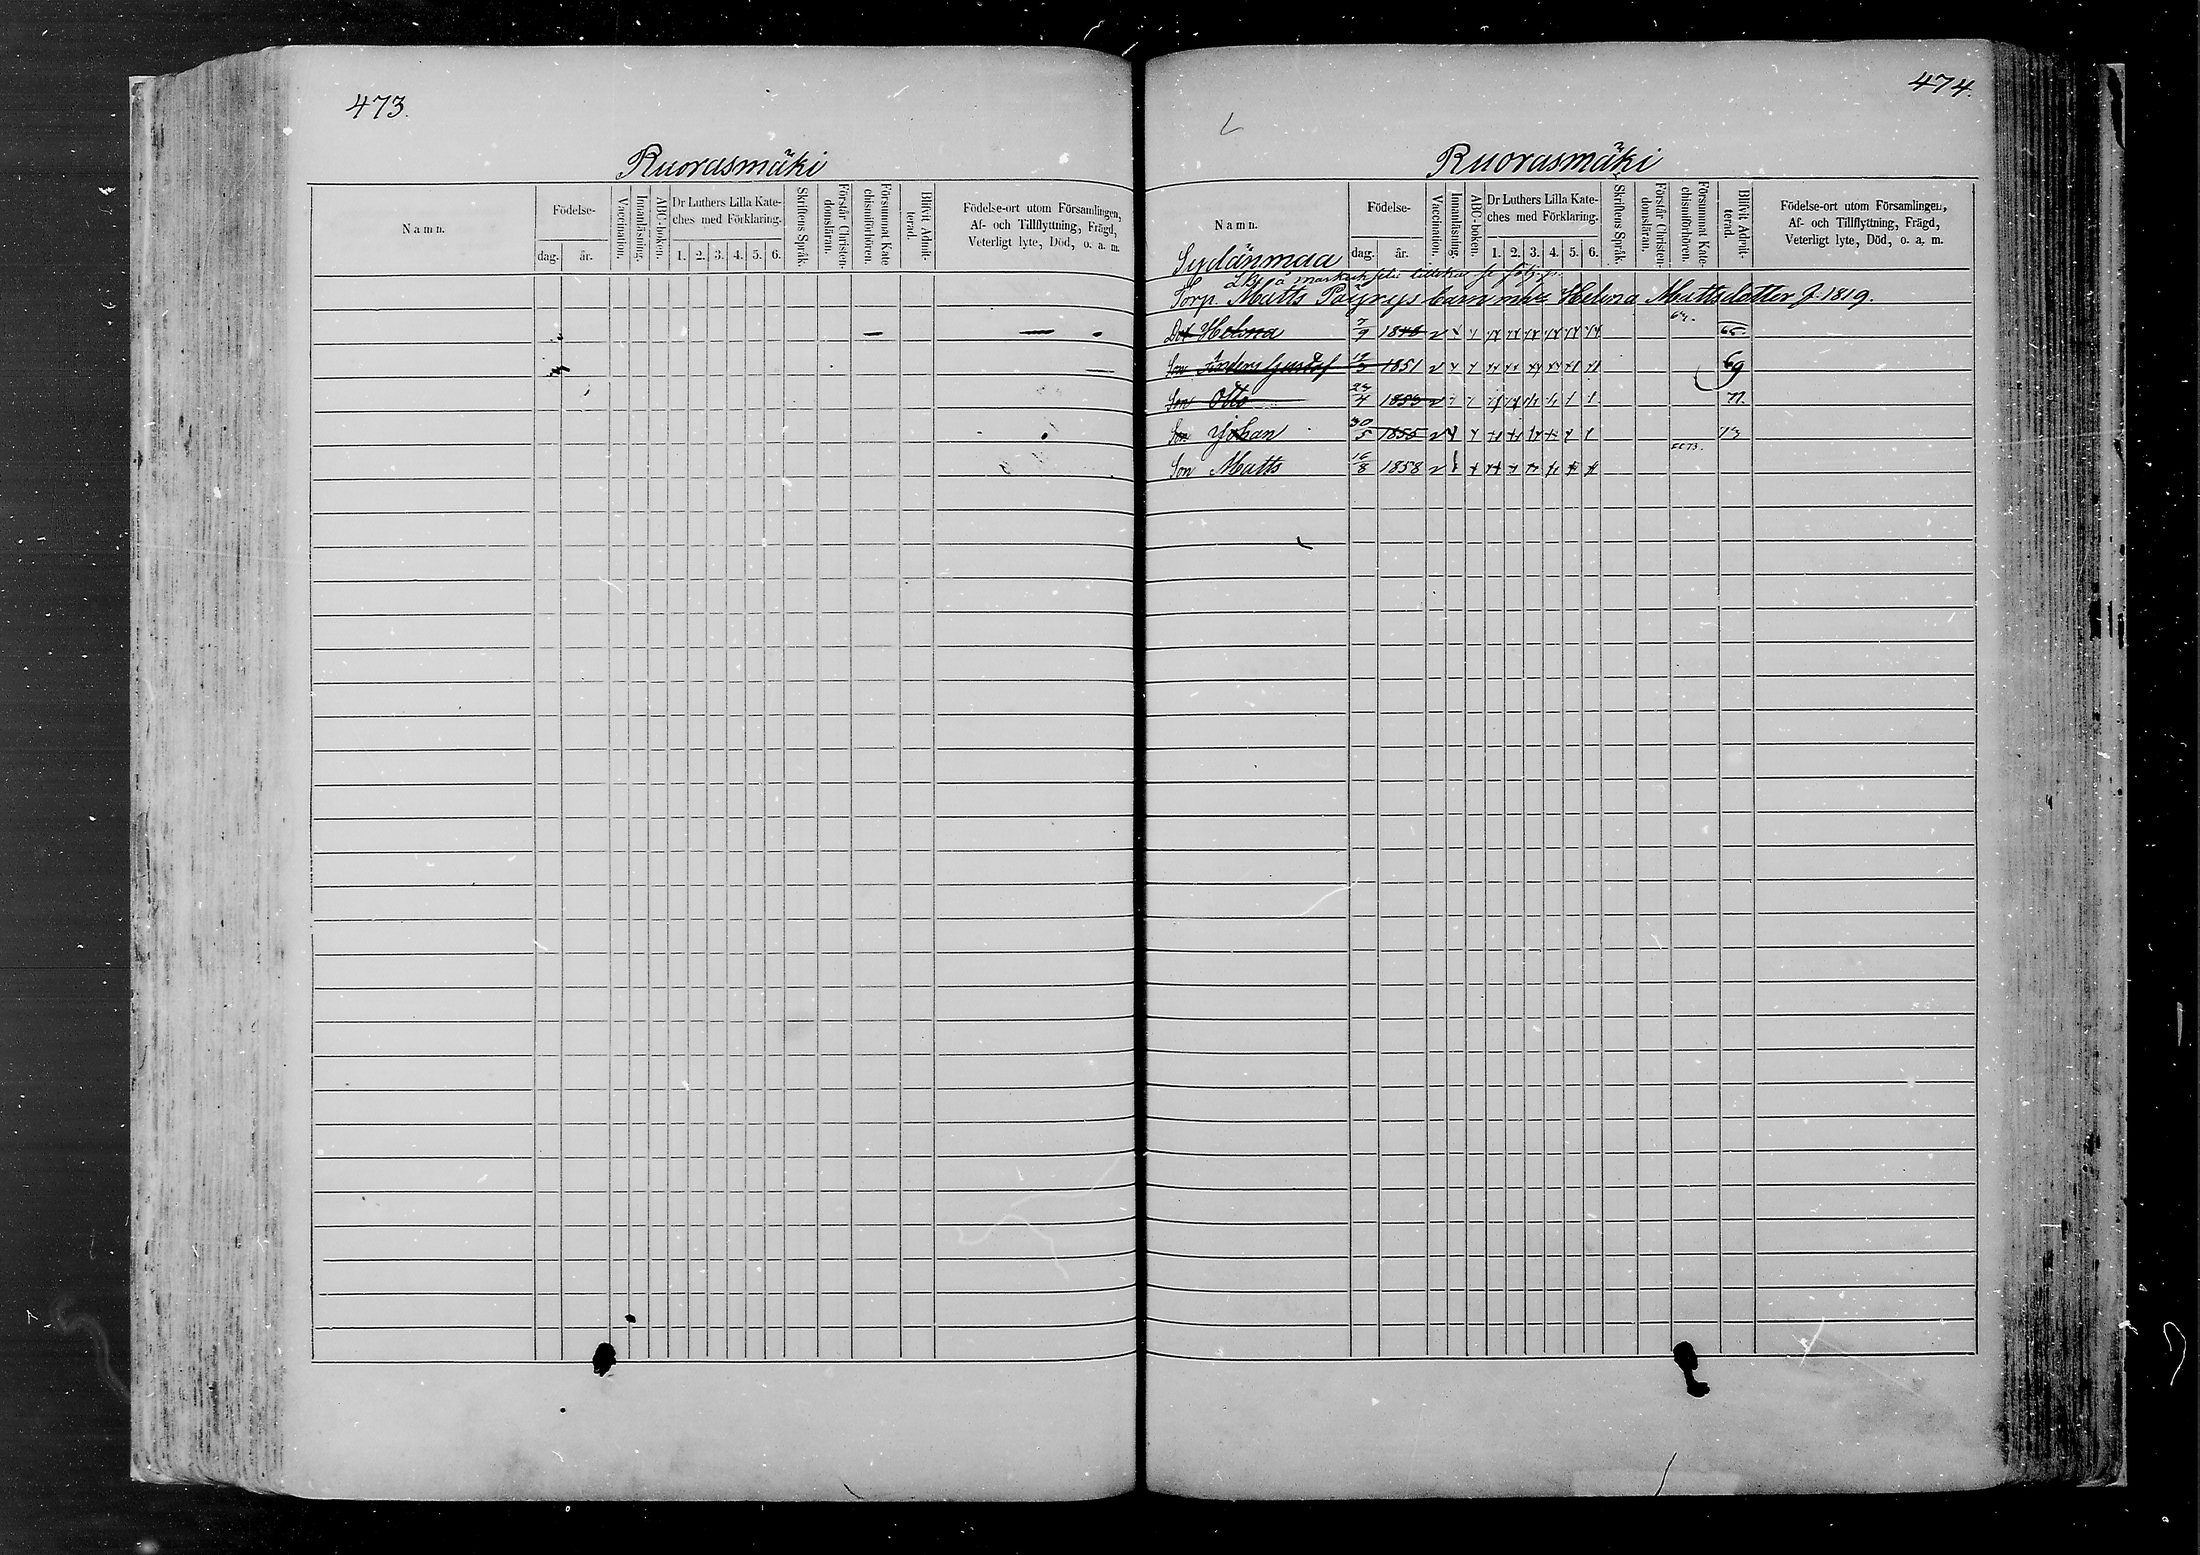 473.
Ruorasmäki
Namn.
Födelse-
dag. år.
Vaccination.
Innanläsning.
ABC-boken.
Dr Luthers Lilla Kate-
ches med Förklaring.
1. 2. 3. 4. 5. 6.
Skriftens Språk.
Förstår Christen-
domsläran.
Försummat Kate
chismiförhören.
Blifvit Admit-
terad.
Födelse-ort utom Församlingen,
Af- och Tillflyttning, Frägd,
Veterligt lyte, Död, o. a. m.
474.
Ruorasmäki
Namn.
Födelse-
dag. år.
Vaccination.
Innanläsning.
ABC-boken.
Dr Luthers Lilla Kate-
ches med Förklaring.
1. 2. 3. 4. 5. 6.
Skriftens Språk.
Förstår Christen-
domsläran.
Försummat Kate-
chismiförhören.
Blifvit Admit-
terad.
Födelse-ort utom Församlingen,
Af- och Tillflyttning, Frägd,
Veterligt lyte, Död, o. a. m.
Sydänmaa
Torp. Matts Barn med Helena Mattsdotter f. 1819.
Dot Helena 7/9 1848 65
Son Anders Gustaf 1851 69
Son Otto 1853 71.
Son Johan 30/5 1855 73
Son Matts 16/8 1858